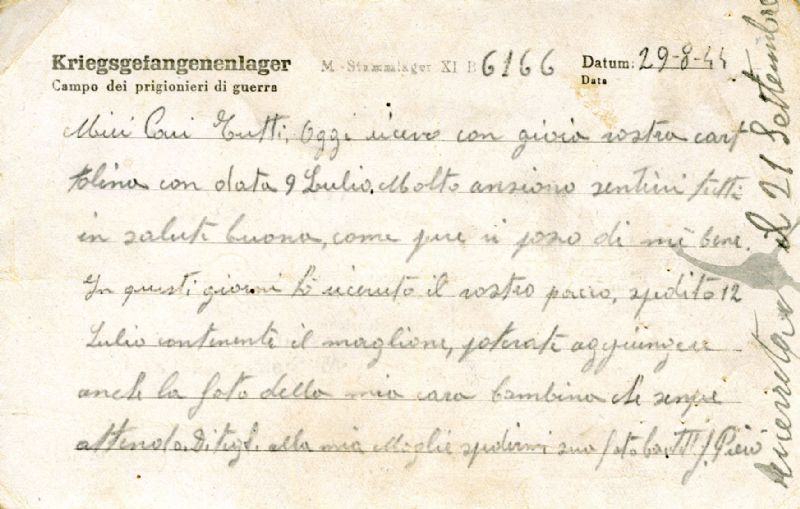 Kriegsgefangenenlager M.-Stammlager XI B 6166 Datum: 29-8-44
Campo dei prigionieri di guerra Data
Miei Cari Tutti, Oggi ricevo con gioia vostra cart
tolina con data 9 Lulio. Molto ansiono sentirvi tutti
in salute buona, come pure vi poso di me bene.
In questi giorni hò ricevuto il vostro pacco, spedito 12
Lulio contenente il maglione, potevate aggiungere
anche la foto della mia cara bambina che sempre
attendo. alla mia Moglie spedirmi sua foto Piero
il 21 Settembre